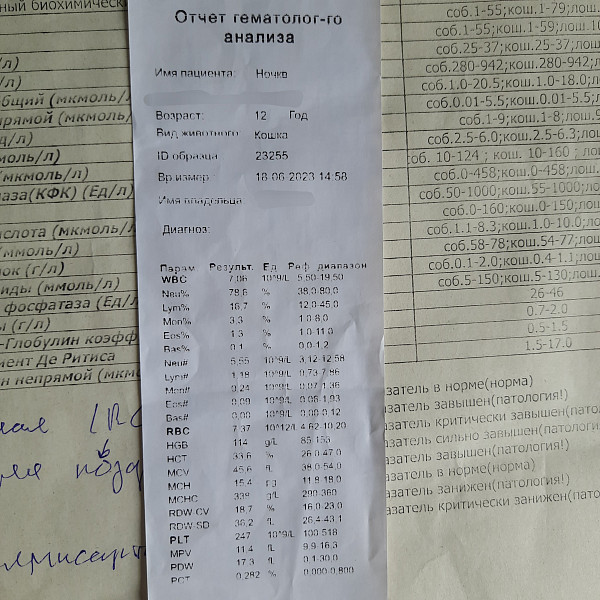 Отчет гематолог-го
анализа
Имя пациента: Ночка
Возраст: 12 Год
Вид животного Кошка
ID образца 23255
Вр.измер. 18-06-2023 14:58
Имя владельца
Диагноз:
Парам Результ. Ед Реф. диапазон
WBC 7.06 10^9/L 5.50-19.50
Neu% 78.6 % 38.0-80.0
Lym% 16.7 % 12.0-45.0
Mon% 3.3 % 1.0-8.0
Eos% 1.3 % 1.0-11.0
Bas% 0.1 % 0.0-1.2
Neu# 5.55 10^9/L 3.12-12.58
Lym# 1.18 10^9/L 0.73-7.86
Mon# 0.24 10^9/L 0.07-1.36
Eos# 0.09 10^9/L 0.06-1.93
Bas# 0.00 10^9/L 0.00-0.12
RBC 7.37 10^12/L 4.62-10.20
HGB 114 g/L 85-153
HCT 33.6 % 26.0-47.0
MCV 45.6 fL 38.0-54.0
MCH 15.4 pg 11.8-18.0
MCHC 339 g/L 290-360
RDW-CV 18.7 % 16.0-23.0
RDW-SD 36.2 fL 26.4-43.1
PLT 247 10^9/L 100-518
MPV 11.4 fL 9.9-16.3
PDW 17.3 fL 0.1-30.0
PCT 0.282 % 0.000-0.800
ный биохимически
/л)
/л)
бщий (мкмоль/л
прямой (мкмоль/
/л)
моль/л)
(мкмоль/л)
аза(КФК) (Ед/л)
слота (мкмоль/л)
(ммоль/л)
ок (г/л)
иды (ммоль/л)
фосфатаза (Ед/
ы (г/л)
-Глобулин коэфф
мент Де Ритиса
н непрямой (мкмо
соб.1-55;кош.1-79;лош.
соб.1-55;кош.1-59;лош.
соб.25-37;кош.25-37;лош.
соб.280-942;кош.280-942;ло
соб.1.0-20.5;кош.1.0-18.0;л
соб.0.01-5.5;кош.0.01-5.5;л
соб.1-9;кош.1-8;лош.9
соб.2.5-6.0;кош.2.5-6.3;лош
соб. 10-124 ; кош. 10-160 ; лош
соб.0-458;кош.0-458;лош.
соб.50-1000;кош.55-1000;л
соб.0-160;кош.0-150;лош
соб.1.1-8.3;кош.1.0-10.0;ло
соб.58-78;кош.54-77;лош
соб.0.1-2.0;кош.0.4-1.1;лош
соб.5-150;кош.5-130;лош.
26-46
0.7-2.0
0.5-1.5
1.5-17.0
азатель в норме(норма)
азатель завышен(патология!)
азатель критически завышен(патол
азатель сильно завышен(патология!
азатель завышен(патология!)
азатель в норме(норма)
азатель занижен(патология!)
азатель критически занижен(патоло